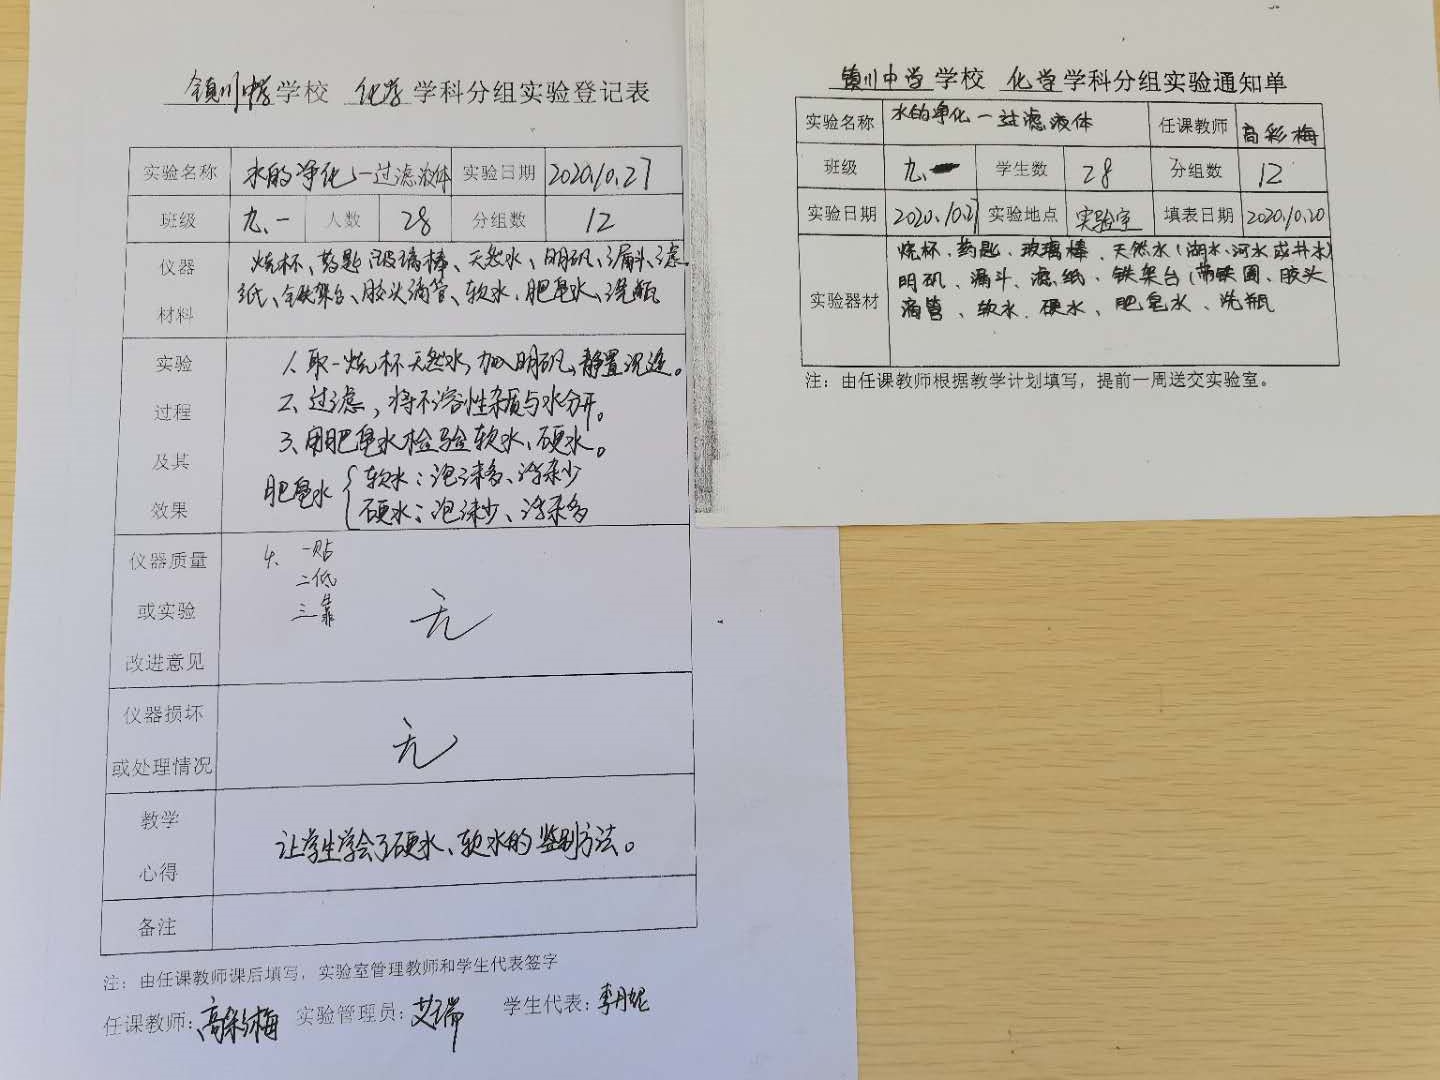 镇川中学学校 化学学科分组实验登记表
实验名称 水的净化—过滤液体 实验日期 2020.10.27
班级 九.一 人数 28 分组数 12
仪器
材料
烧杯、药匙、玻璃棒、天然水、明矾、漏斗、滤
纸、铁架台、胶头滴管、软水、肥皂水、洗瓶
实验
过程
及其
效果
1、取一烧杯天然水,加入明矾,静置沉淀。
2、过滤,将不溶性杂质与水分开。
3、用肥皂水检验软水、硬水。
肥皂水 { 软水:泡沫多、浮杂少
硬水:泡沫少、浮杂多
仪器质量
或实验
改进意见
4、一贴
二低
三靠
无
仪器损坏
或处理情况
无
教学
心得
让学生学会了硬水、软水的鉴别方法。
备注
注：由任课教师课后填写，实验室管理教师和学生代表签字
任课教师:高彩梅 实验管理员:艾瑞 学生代表:李月妮
镇川中学学校 化学学科分组实验通知单
实验名称 水的净化—过滤液体 任课教师 高彩梅
班级 九.一 学生数 28 分组数 12
实验日期 2020.10.27 实验地点 实验室 填表日期 2020.10.20
实验器材
烧杯、药匙、玻璃棒、天然水(湖水、河水或井水)
明矾、漏斗、滤纸、铁架台(带铁圈、胶头
滴管、软水、硬水、肥皂水、洗瓶
注：由任课教师根据教学计划填写，提前一周送交实验室。